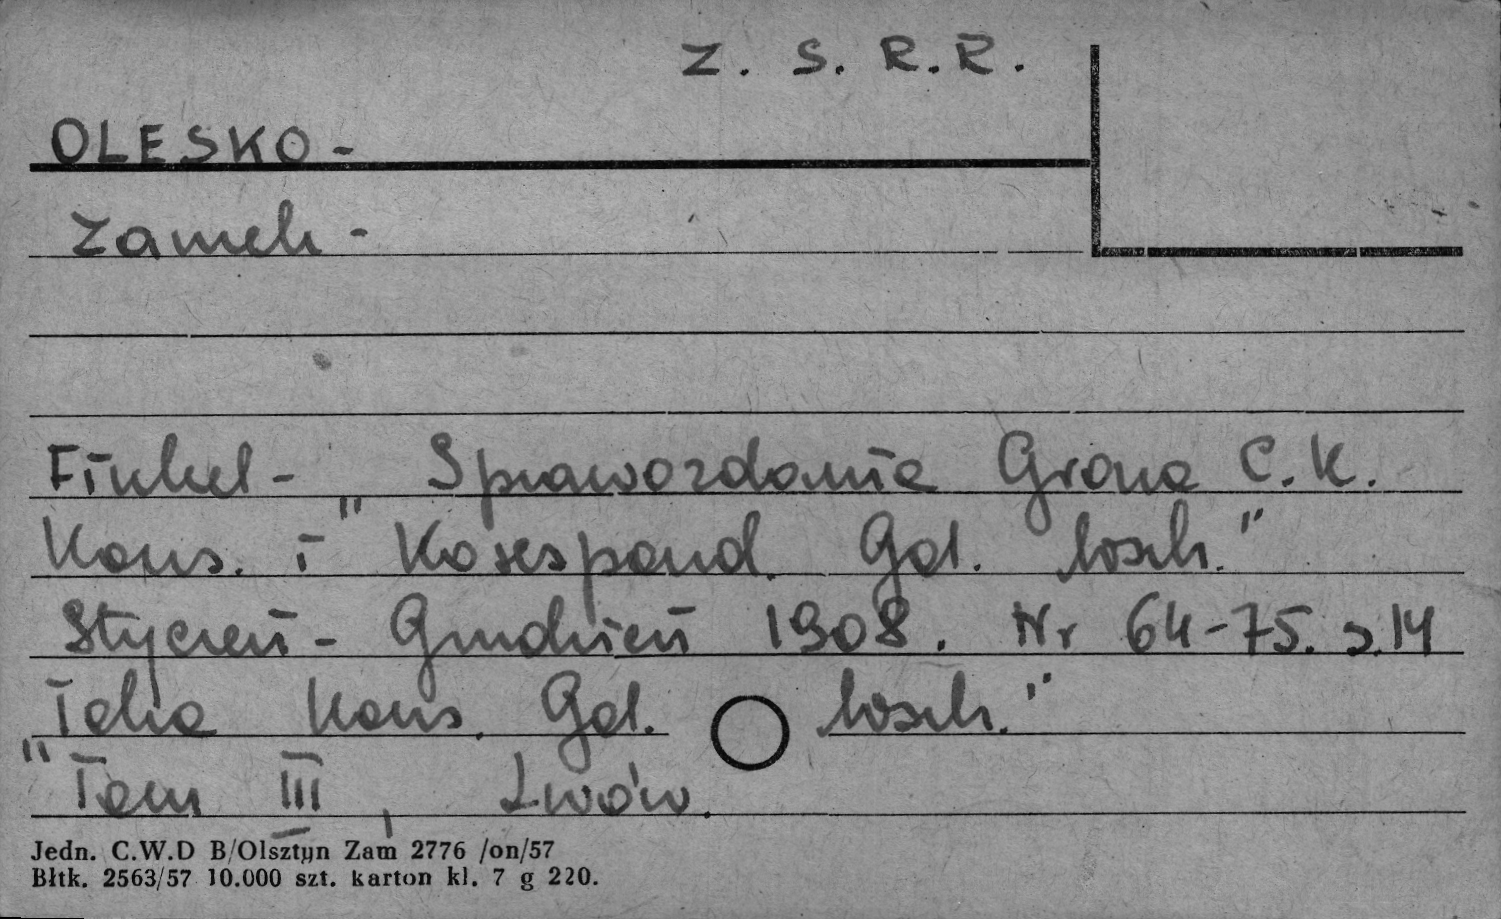 Z. S. R. R.
OLESKO -
Zamek -
Finkel - „Sprawozdanie Grona C. K.
Kons. i Korespond. Gal. wsch."
Styczeń - Grudzień 1908. Nr 64-75. s. 14
„Teka Kons. Gal. wsch."
Tom III, Lwów.
Jedn. C.W.D B/Olsztyn Zam 2776 /on/57
Błtk. 2563/57 10.000 szt. karton kl. 7 g 220.